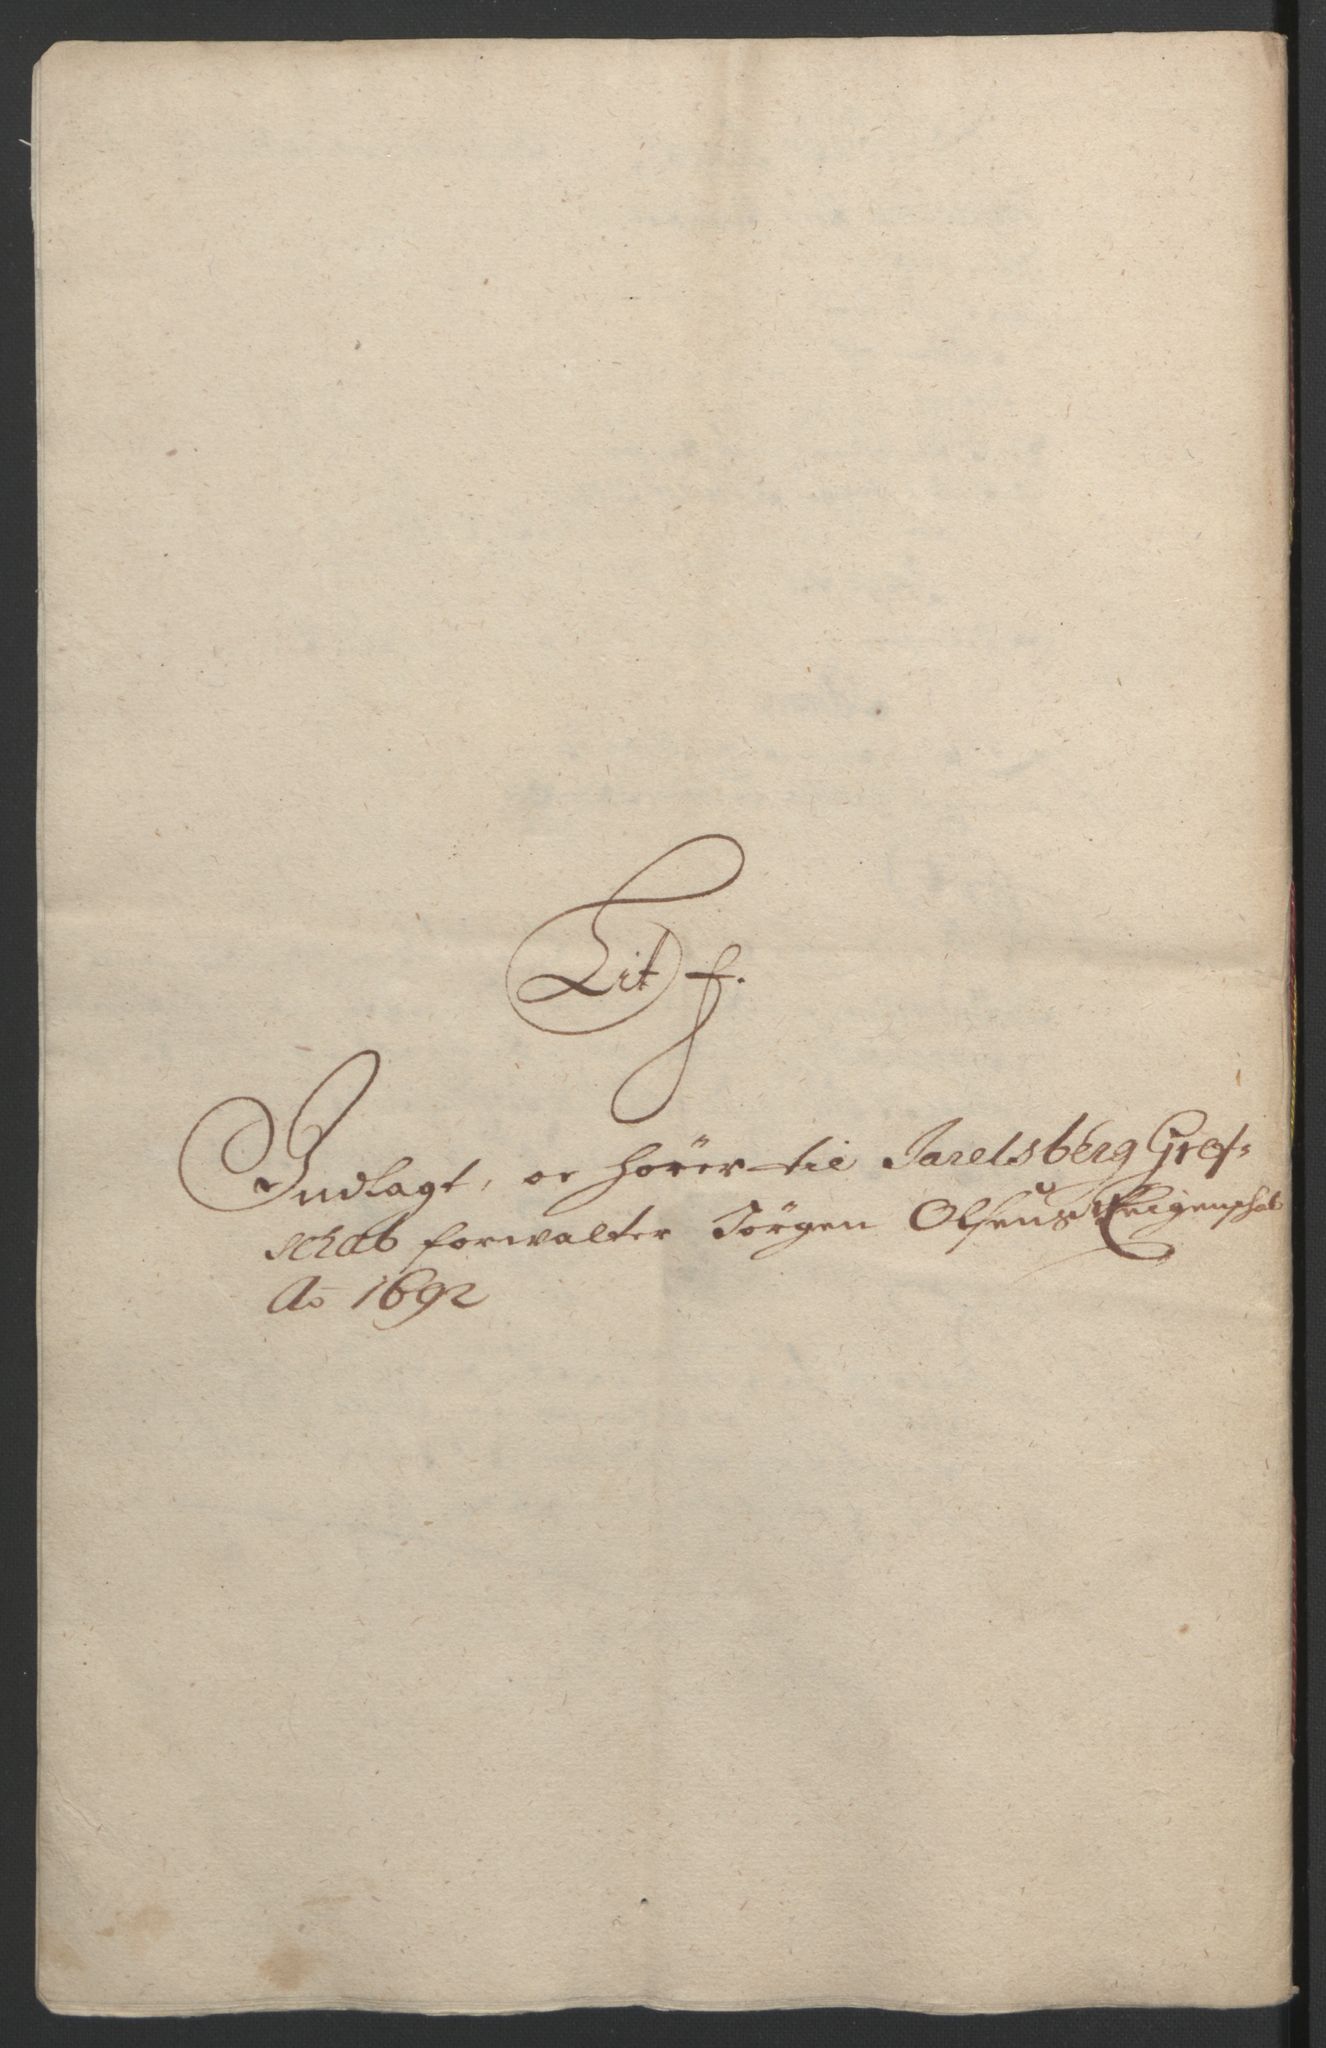 Lit f.
Indlagt, oc hörer til Jarelsberg Gref=
schab forwalter Jörgen Olsens Reigenschab
Ao 1692